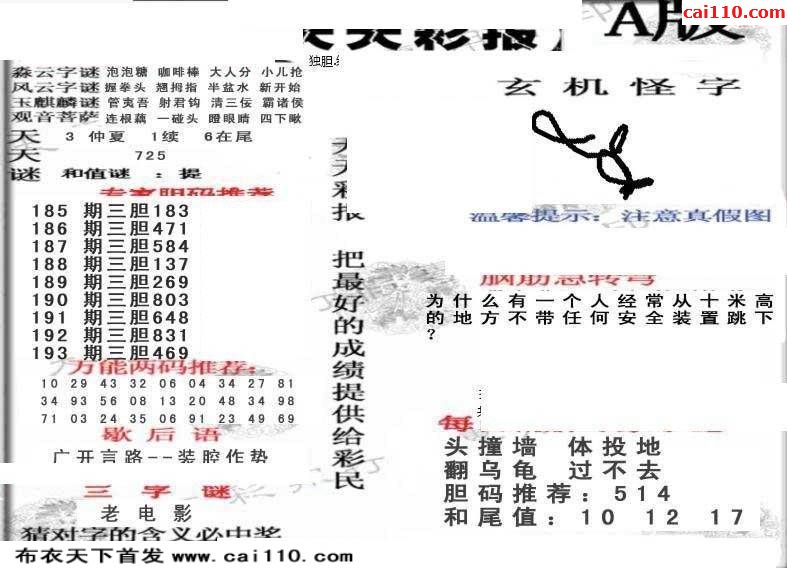 cai110.com
天天彩报 A版
独胆
森云字谜 泡泡糖 咖啡棒 大人分 小儿抢
风云字谜 握拳头 翘拇指 半盆水 新开始
玉麒麟谜 管夷吾 射君钩 清三佞 霸诸侯
观音菩萨 连根藕 一碰头 瞪眼睛 四下瞅
天 3 仲夏 1续 6在尾
天 725
谜 和值谜 : 提
专家胆码推荐
185 期三胆183
186 期三胆471
187 期三胆584
188 期三胆137
189 期三胆269
190 期三胆803
191 期三胆648
192 期三胆831
193 期三胆469
万能两码推荐:
10 29 43 32 06 04 34 27 81
34 93 56 08 13 20 48 34 98
71 03 24 35 06 91 23 49 69
歇后语
广开言路--装腔作势
三字谜
老电影
猜对字的含义必中奖
天天彩报 把最好的成绩提供给彩民
玄机怪字
温馨提示: 注意真假图
脑筋急转弯
为什么有一个人经常从十米高
的地方不带任何安全装置跳下
?
每
头撞墙 体投地
翻乌龟 过不去
胆码推荐: 514
和尾值: 10 12 17
布衣天下首发 www.cai110.com